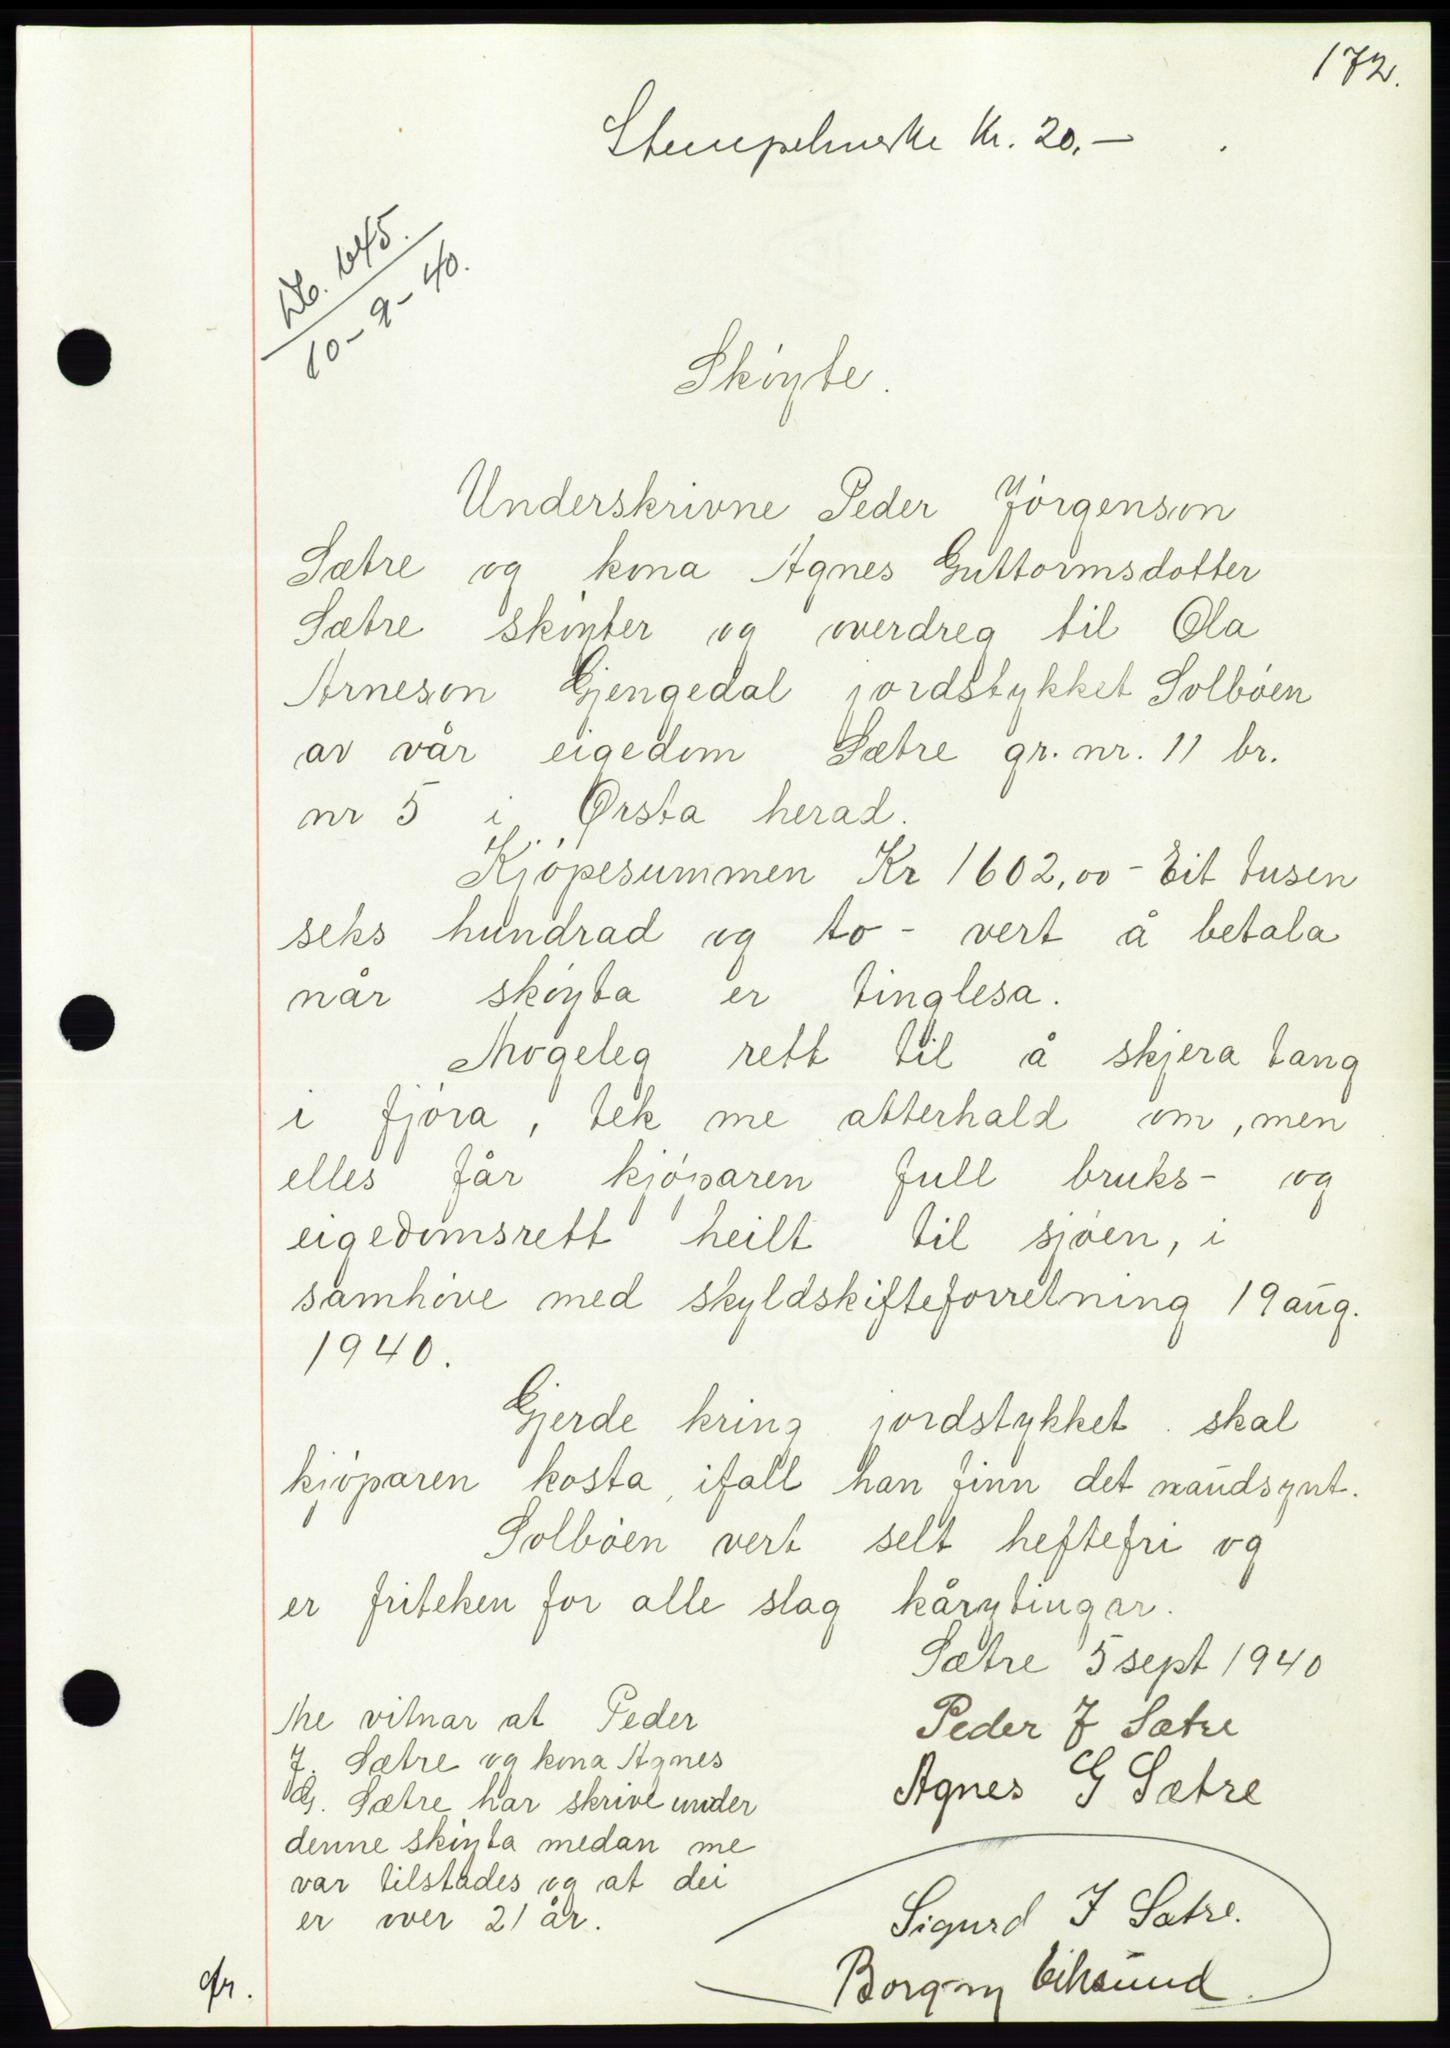 172.
Stempelmerke kr. 20.-
Db. 645.
10-9-40.
Sköyte.
Underskrivne Peder Jörgenson
Sætre og kona Agnes Guttormsdotter
Sætre sköyter og overdreg til Ola
Arneson Gjengedal jordstykket Solböen
av vår eigedom Sætre gr. nr. 11 br.
nr 5 i Ørsta herad.
Kjöpesummen Kr 1602,00 - Eit tusen
seks hundrad og to - vert å betala
når sköyta er tinglesa.
Mogeleg rett til å skjera tang
i fjöra, tek me atterhald om, men
elles får kjöparen full bruks- og
eigedomsrett heilt til sjöen, i
samhöve med skyldskifteforretning 19 aug.
1940.
Gjerde kring jordstykket skal
kjöparen kosta, ifall han finn det naudsynt.
Solböen vert selt heftefri og
er friteken for alle slag kårytingar.
Sætre 5 sept 1940
Peder J Sætre
Agnes G Sætre
Me vitnar at Peder
J. Sætre og kona Agnes
G. Sætre har skrive under
denne sköyta medan me
var tilstades og at dei
er over 21 år.
Sigurd J Sætre.
Borgny Eiksund